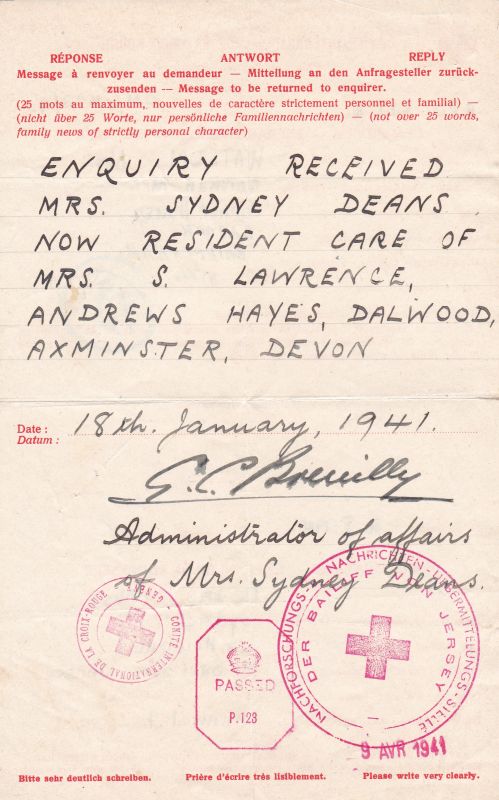 RÉPONSE ANTWORT REPLY
Message à renvoyer au demandeur — Mitteilung an den Anfragesteller zurück-
zusenden — Message to be returned to enquirer.
(25 mots au maximum, nouvelles de caractère strictement personnel et familial) —
(nicht über 25 Worte, nur persönliche Familiennachrichten) — (not over 25 words,
family news of strictly personal character)
ENQUIRY RECEIVED
MRS. SYDNEY DEANS
NOW RESIDENT CARE OF
MRS. S. LAWRENCE,
ANDREWS HAYES, DALWOOD,
AXMINSTER, DEVON
Date : 18th. January, 1941.
Datum :
G. C.
Administrator of affairs
of Mrs. Sydney Deans.
COMITÉ INTERNATIONAL DE LA CROIX-ROUGE - GENÈVE -
PASSED
P.123
NACHFORSCHUNGS- & NACHRICHTEN-UEBERMITTELUNGS-STELLE
DER BAILIFF VON JERSEY
9 AVR 1941
Bitte sehr deutlich schreiben. Prière d'écrire très lisiblement. Please write very clearly.